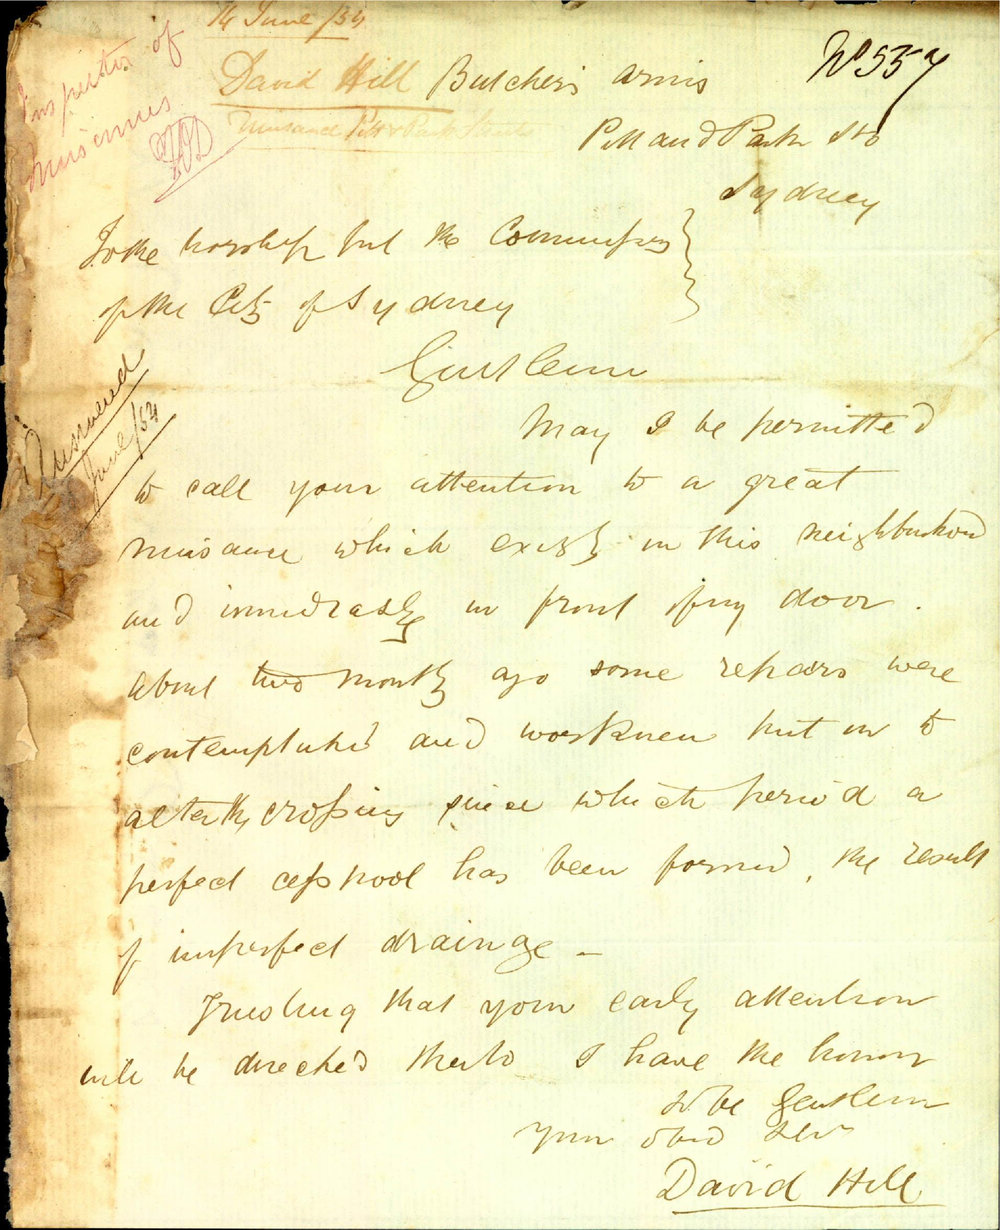 14 June /54
David Hill Butcher's arms
No 557
Inspector of
Nuisances
Nuisance Pitt & Park Streets
Pitt and Park Sts
Sydney
To the worshipful the Commissrs
of the City of Sydney
Gentlemen
Answered
June /54
May I be permitted
to call your attention to a great
nuisance which exists in this neighbourhood
and immediately in front of my door.
About two months ago some repairs were
contemplated and workmen put on to
alter the crossing since which period a
perfect cesspool has been formed, the result
of imperfect drainage –
Trusting that your early attention
will be directed thereto I have the honor
to be Gentlemen
Your obed Serv
David Hill